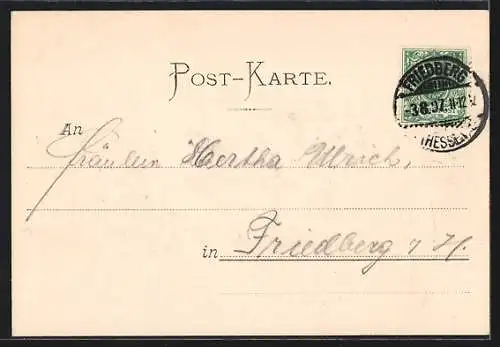 POST-KARTE.
FRIEDBERG
3.8.97. 11-12 V
(HESSEN)
An
Fräulein Hertha Ullrich,
in Friedberg i/H.